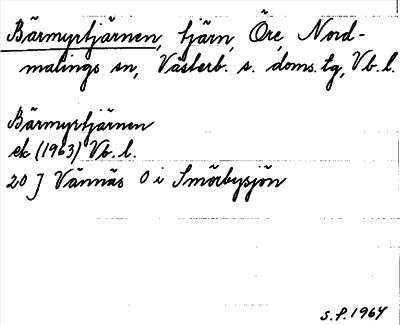 Bärmyrtjärnen, tjärn, Öre, Nord-
malings sn, Västerb. s. doms. tg, Vb. l.
Bärmyrtjärnen
ek (1963) Vb. l.
20 J Vännäs O i Smörbysjön
S. F. 1964